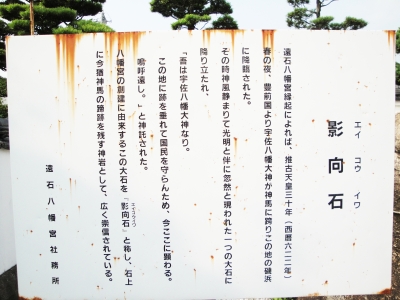 影向石
エイ コウ イワ
遠石八幡宮縁起によれば、推古天皇三十年（西暦六二二年）
春の夜、豊前国より宇佐八幡大神が神馬に跨りこの地の磯浜
に降臨された。
その時神風静まりて光明と伴に忽然と現われた一つの大石に
降り立たれ、
「吾は宇佐八幡大神なり。
この地に跡を垂れて国民を守らんため、今ここに顕わる。
嗚呼遠し。」と神託された。
八幡宮の創建に由来するこの大石を「影向石」と称し、石上
エイコウイワ
に今猶神馬の蹄跡を残す神岩として、広く崇信されている。
遠石八幡宮社務所